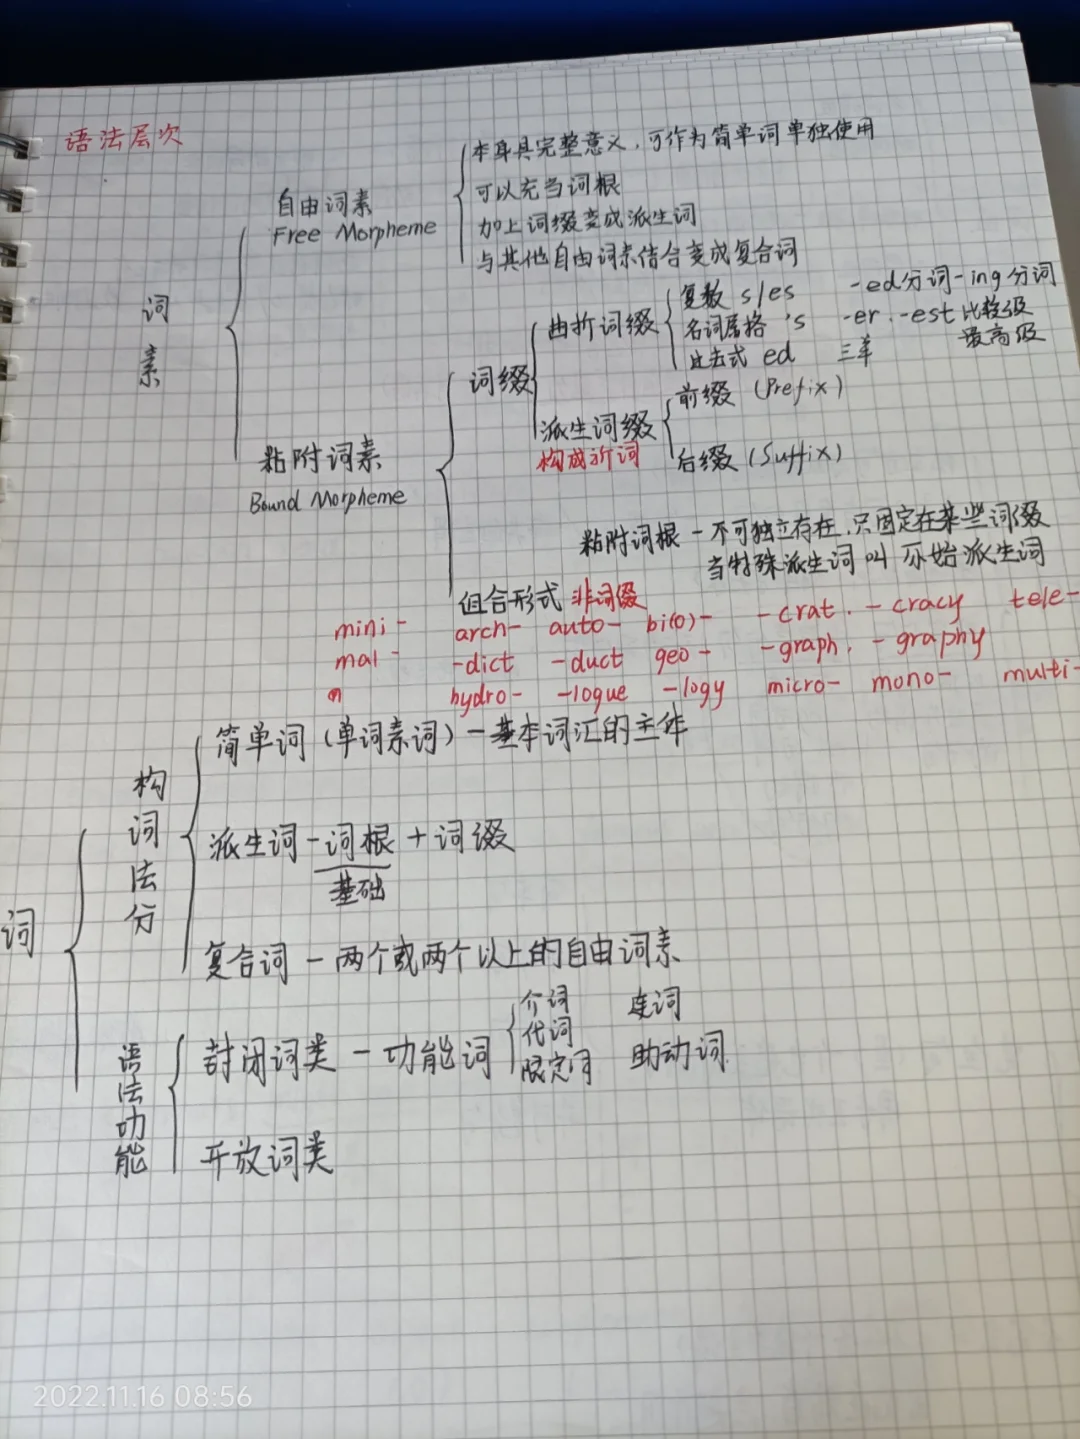 语法层次
词素
自由词素
Free Morpheme
本身具完整意义，可作为简单词单独使用
可以充当词根
加上词缀变成派生词
与其他自由词素结合变成复合词
粘附词素
Bound Morpheme
词缀
曲折词缀
复数 s/es -ed分词 -ing分词
名词属格 's -er. -est 比较级
最高级
过去式 ed 三单
派生词缀
构成新词
前缀 (Prefix)
后缀 (Suffix)
粘附词根 - 不可独立存在，只固定在某些词缀
当特殊派生词叫 原始派生词
组合形式 非词缀
mini- arch- auto- bi(o)- -crat. -cracy tele-
mal- -dict -duct geo- -graph. -graphy
hydro- -logue -logy micro- mono- multi-
词
构词法分
简单词 (单词素词) - 基本词汇的主体
派生词 - 词根 + 词缀
基础
复合词 - 两个或两个以上的自由词素
语法功能
封闭词类 - 功能词
介词 连词
代词
限定词 助动词
开放词类
2022.11.16 08:56